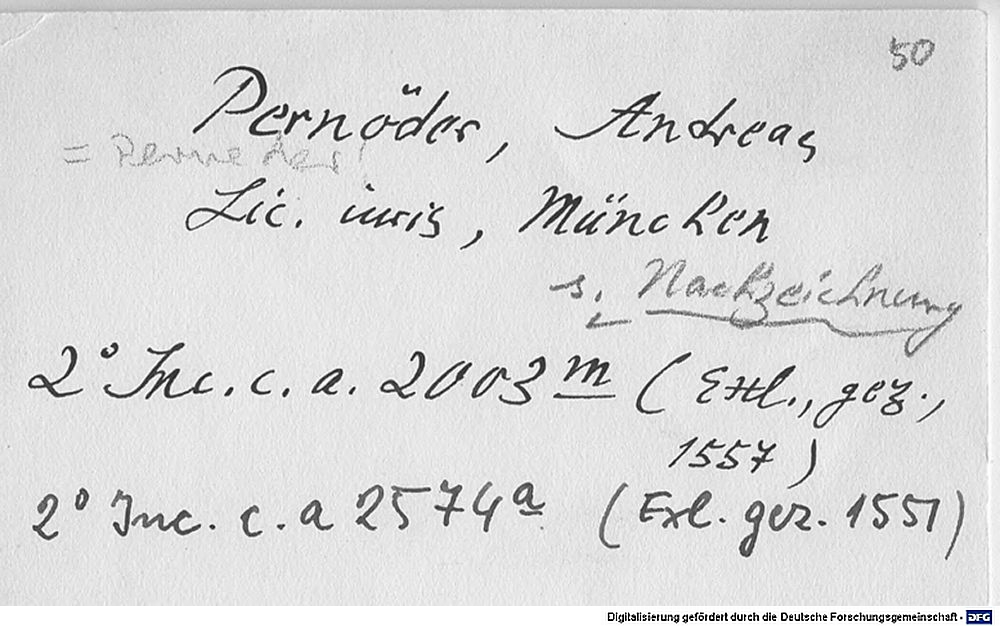 50
Pernöder, Andreas
= Perneder!
Lic. iuris, München
s. Nachzeichnung
2° Inc. c. a. 2003 m (Exl., gez.,
1557)
2° Inc. c. a 2574 a (Exl. gez. 1551)
Digitalisierung gefördert durch die Deutsche Forschungsgemeinschaft - DFG